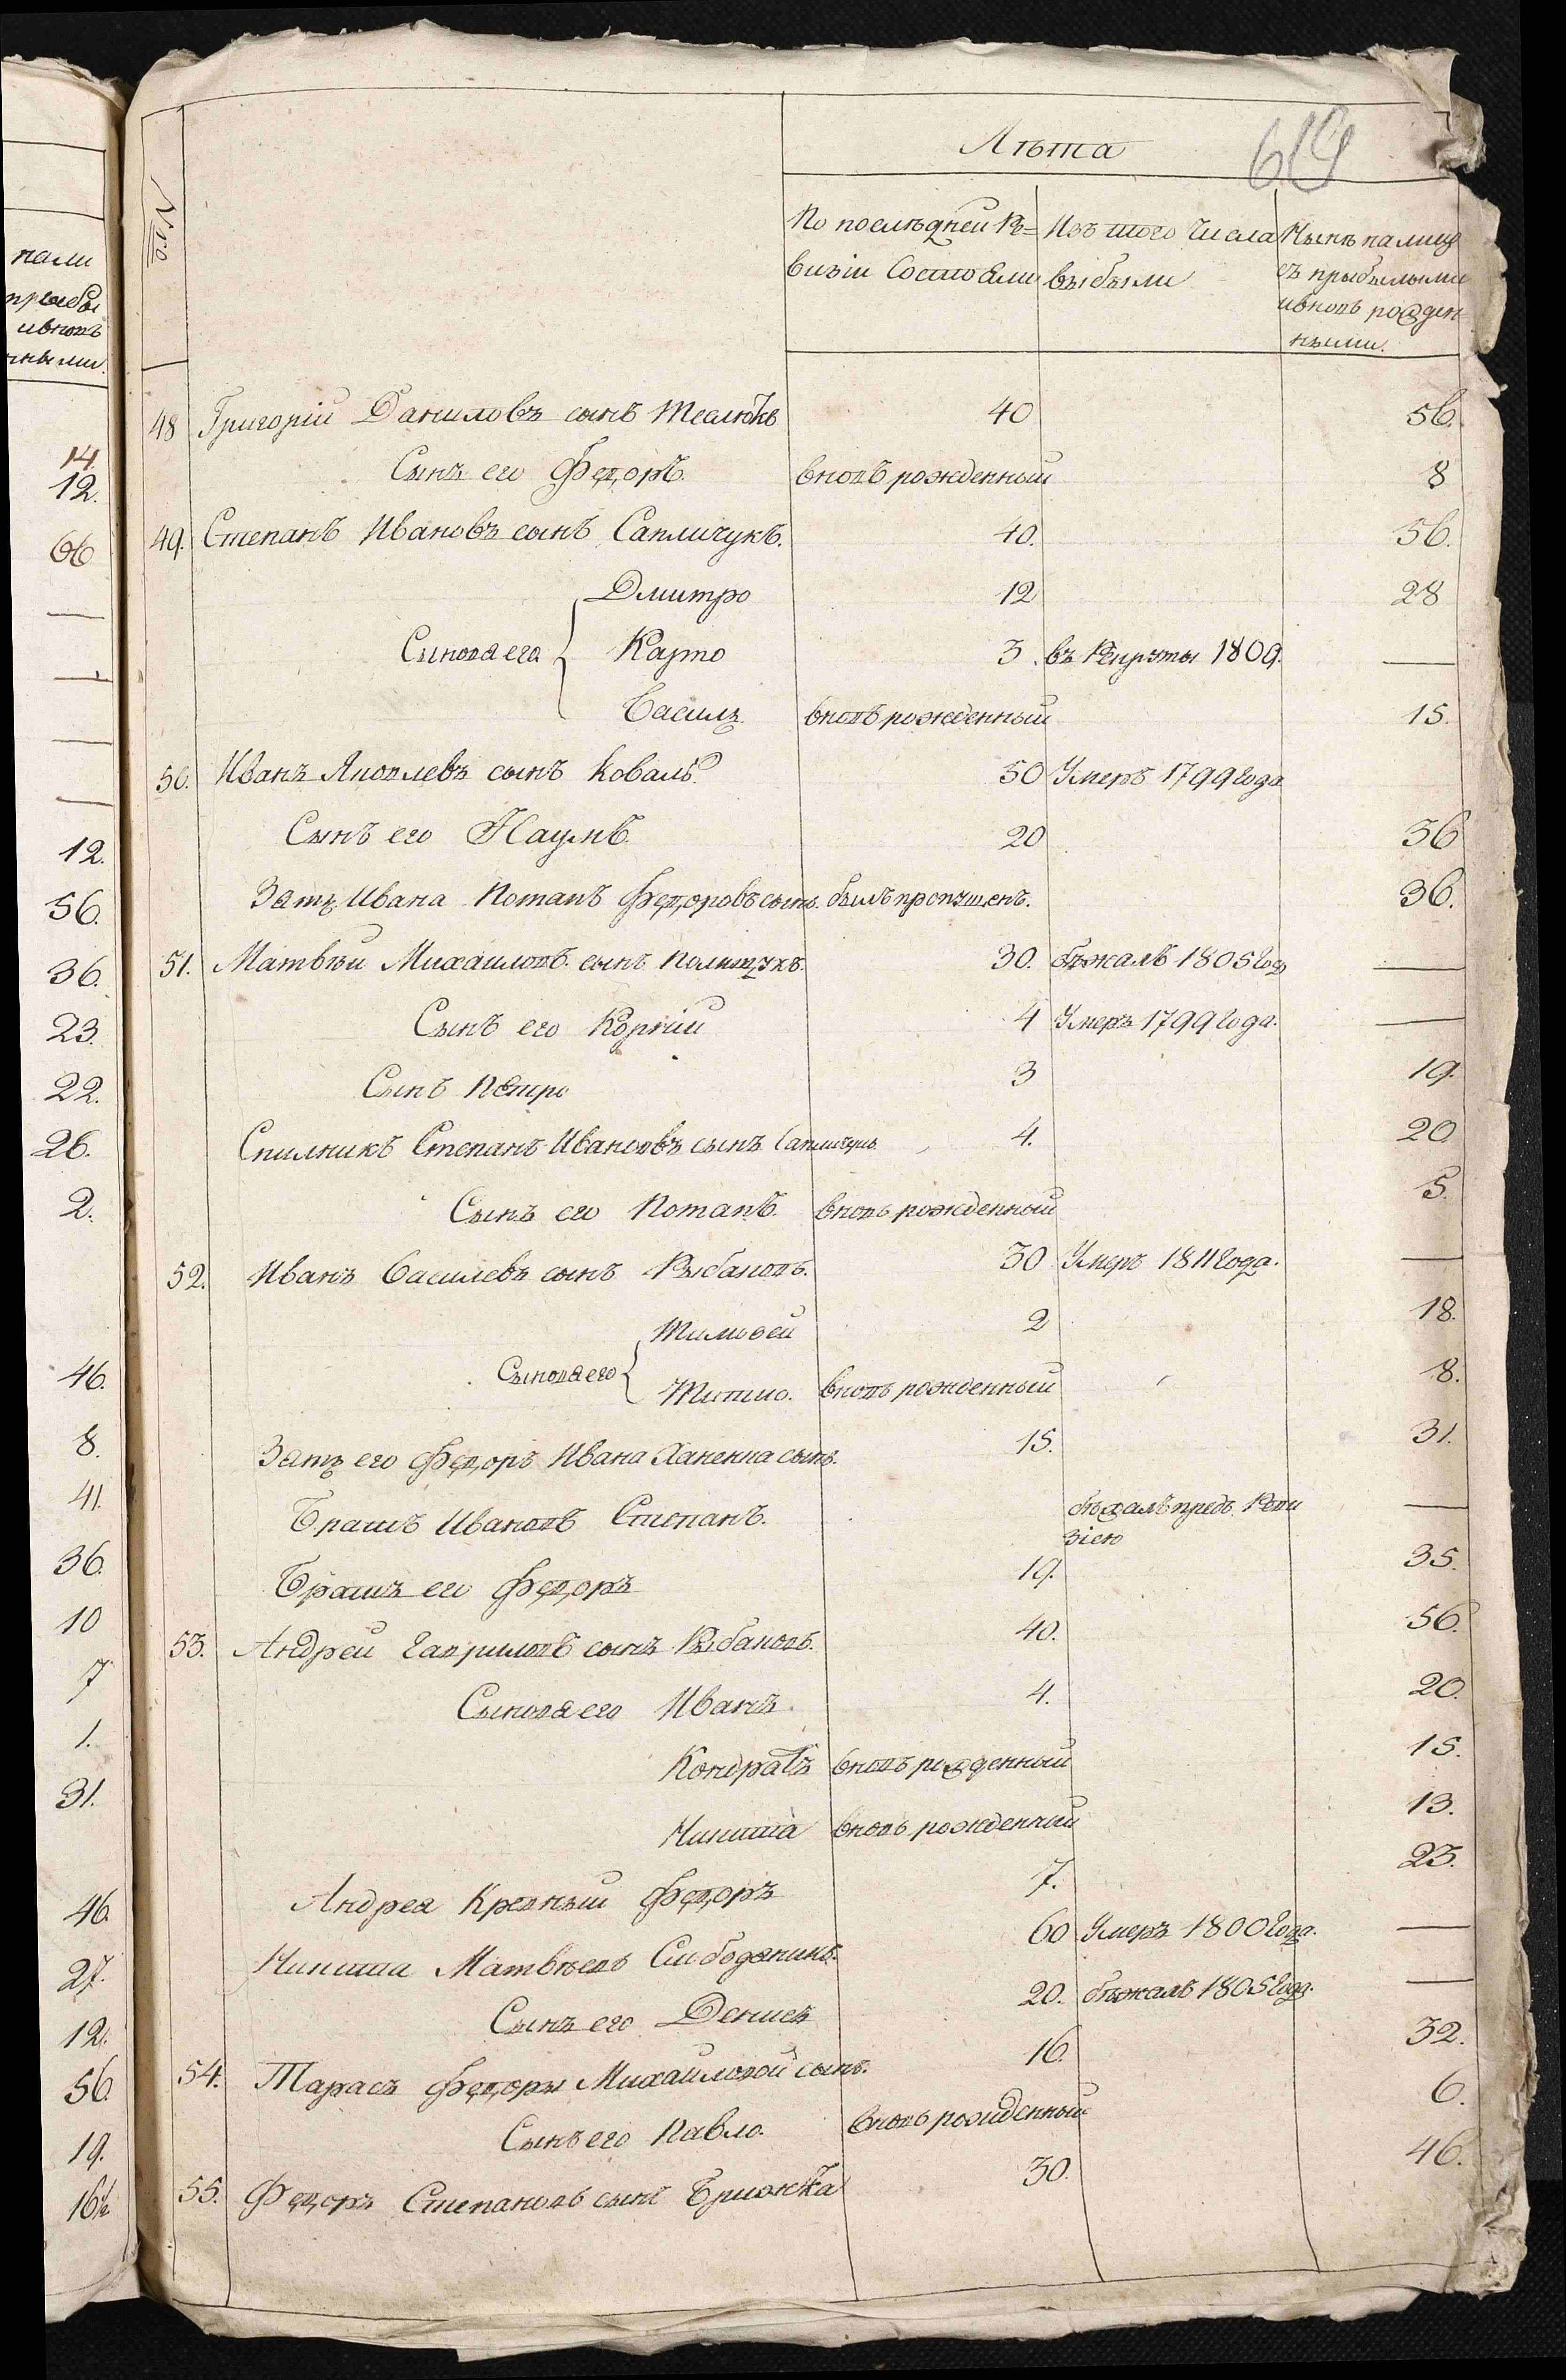 нали
прибы
ивновь
нными.
14.
12.
66
12.
56.
36.
23.
22.
26.
2.
46.
8.
41.
36.
10
7
1.
31.
46.
27.
12.
56.
19.
16½
619
Лѣта
Nro
По послѣдней Ре=
визіи Состояли
Изъ того Числа
выбыли
Нынѣ налицо
съ прибылыми
ивновь рожден=
ными.
48 Григорій Даниловъ сынъ 40 56.
Сынъ его Федоръ. вновь рожденный 8
49. Степанъ Ивановъ сынъ Сапличукъ. 40. 56.
Дмитро 12 28
Сыновя его Карпо 3 въ Рекруты 1809. —
Василь вновь рожденный 15.
50. Иванъ Яковлевъ сынъ Коваль 50 Умеръ 1799 года
Сынъ его Наумъ. 20 36
Зять Ивана Потапъ Федоровъ сынъ. былъ пропущенъ. 36.
51. Матвѣй Михайловъ сынъ Полищукъ. 30. бѣжалъ 1805 год —
Сынъ его Корній 4 Умеръ 1799 года. —
Сынъ Петро 3 19.
Спилникъ Степанъ Ивановъ сынъ Сапличукъ 4. 20
Сынъ его Потапъ. вновь рожденный 5.
52. Иванъ Василевъ сынъ Рыбаковъ. 30 Умеръ 1811 года. —
Тимофей 2 18.
Сыновя его
Титко. вновь рожденный 8.
Зять его Федоръ Ивана сынъ. 15. 31.
Братъ Ивановъ Степанъ. бѣжалъ предъ Реви
зіею —
Братъ его Федоръ 19. 35.
53. Андрей Гавриловъ сынъ Рыбаковъ. 40. 56.
Сыновя его Иванъ 4. 20.
Кондратъ вновь рожденный 15.
Микита вновь рожденний 13.
Андрея Кревный Федоръ 7. 23.
Микита Матвѣевъ Слободяникъ. 60 Умеръ 1800 года. —
Сынъ его Денисъ 20. бѣжалъ 1805 года. —
54. Тарасъ Федоры Михайловой сынъ. 16. 32.
Сынъ его Павло. вновь рожденный 6.
55. Федоръ Степановъ сынъ 30. 46.